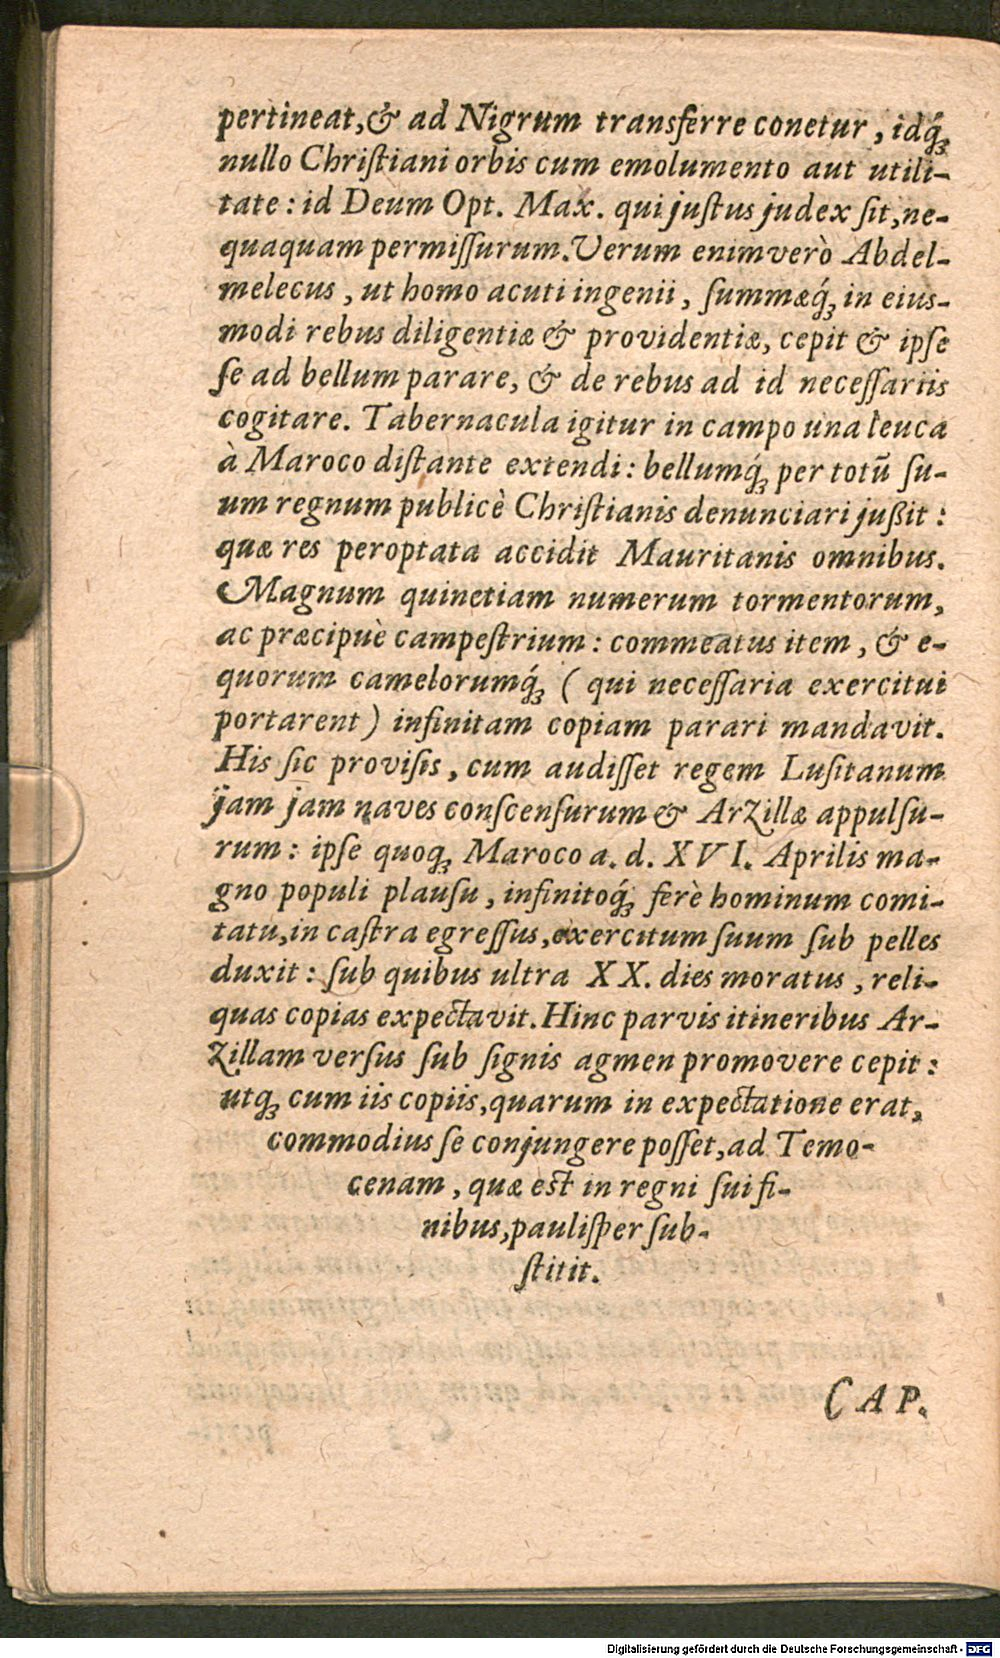 pertineat,& ad Nigrum transferre conetur, idq́ꝫ
nullo Chriſtiani orbis cum emolumento aut utili-
tate: id Deum Opt. Max. qui juſtus judex ſit, ne-
quaquam permiſſurum. Verum enimverò Abdel-
melecus, ut homo acuti ingenii, ſummæq́ꝫ in eius-
modi rebus diligentiæ & providentiæ, cepit & ipſe
ſe ad bellum parare, & de rebus ad id neceſſariis
cogitare. Tabernacula igitur in campo una leuca
à Maroco diſtante extendi: bellumq́ꝫ per totũ ſu-
um regnum publicè Chriſtianis denunciari jußit:
quæ res peroptata accidit Mauritanis omnibus.
Magnum quinetiam numerum tormentorum,
ac præcipuè campeſtrium: commeatus item, & e-
quorum camelorumq́ꝫ ( qui neceſſaria exercitui
portarent) infinitam copiam parari mandavit.
His ſic proviſis, cum audiſſet regem Luſitanum
jam jam naves conſcenſurum & Arzillæ appulſu-
rum: ipſe quoqꝫ Maroco a. d. XVI. Aprilis ma-
gno populi plauſu, infinitoq́ꝫ ferè hominum comi-
tatu, in caſtra egreſſus, exercitum ſuum ſub pelles
duxit: ſub quibus ultra XX. dies moratus, reli-
quas copias expectavit. Hinc parvis itineribus Ar-
zillam verſus ſub ſignis agmen promovere cepit:
utqꝫ cum iis copiis, quarum in expectatione erat,
commodius ſe conjungere poſſet, ad Temo-
cenam, quæ est in regni ſui fi-
nibus, pauliſper ſub-
ſtitit.
CAP.
Digitalisierung gefördert durch die Deutsche Forschungsgemeinschaft - DFG